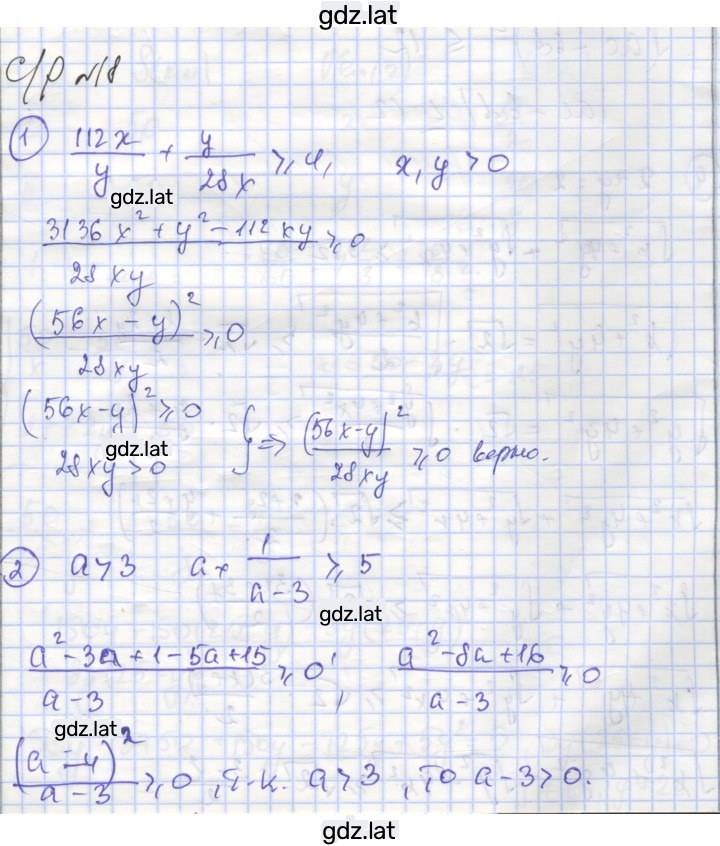 gdz.lat
С/р №18
① 112x/y + y/28x ⩾ 4, x, y > 0
gdz.lat
(3136x² + y² - 112xy)/28xy ⩾ 0
(56x - y)²/28xy ⩾ 0
(56x-y)² ⩾ 0
28xy > 0 } ⇒ (56x-y)²/28xy ⩾ 0 верно.
gdz.lat
② a > 3 a + 1/(a-3) ⩾ 5
gdz.lat
(a² - 3a + 1 - 5a + 15)/(a-3) ⩾ 0; (a² - 8a + 16)/(a-3) ⩾ 0
gdz.lat
(a - 4)²/(a-3) ⩾ 0, т.к. a > 3, то a-3 > 0.
gdz.lat